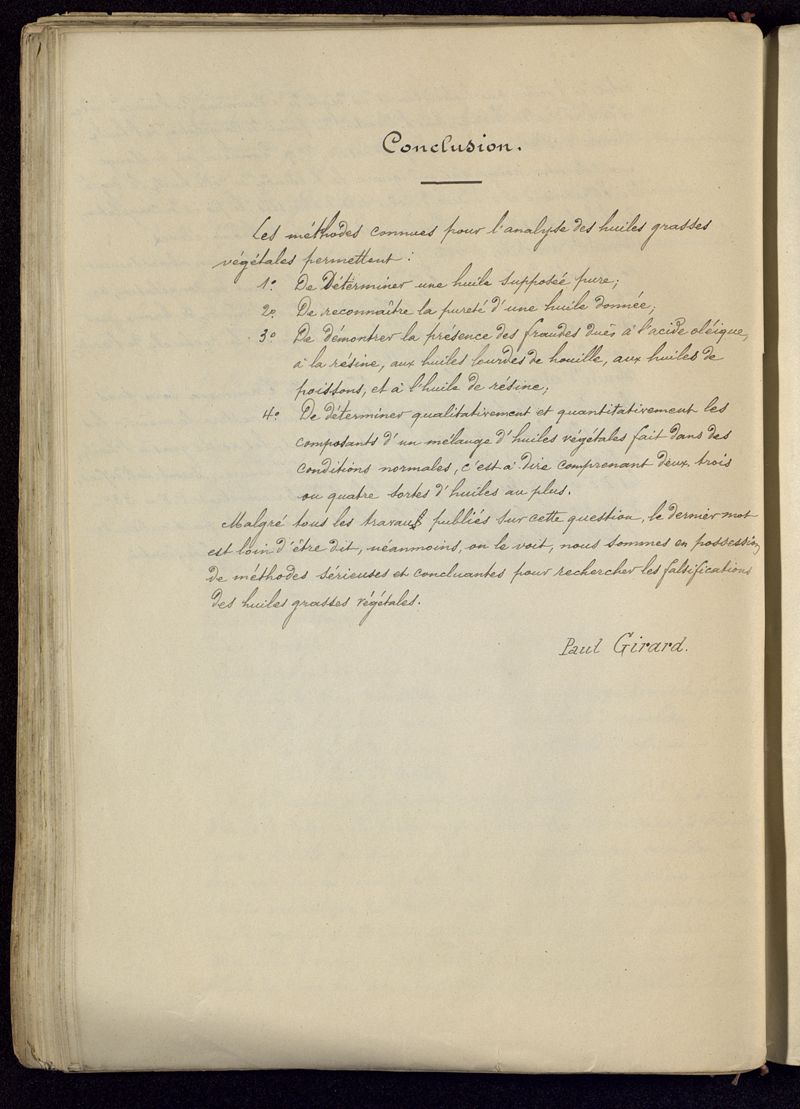 Conclusion.
Les méthodes connues pour l'analyse des huiles grasses
végétales permettent :
1º De Déterminer une huile supposée pure;
2º De reconnaître la pureté d'une huile donnée;
3º De démontrer la présence des fraudes dues à l'acide oléique,
à la résine, aux huiles lourdes de houille, aux huiles de
poissons, et à l'huile de résine;
4º De déterminer qualitativement et quantitativement les
composants d'un mélange d'huiles végétales fait dans des
conditions normales, c'est à dire comprenant deux, trois
ou quatre sortes d'huiles au plus.
Malgré tous les travaux publiés sur cette question, le dernier mot
est loin d'être dit, néanmoins, on le voit, nous sommes en possession
de méthodes sérieuses et concluantes pour rechercher les falsifications
des huiles grasses végétales.
Paul Girard.